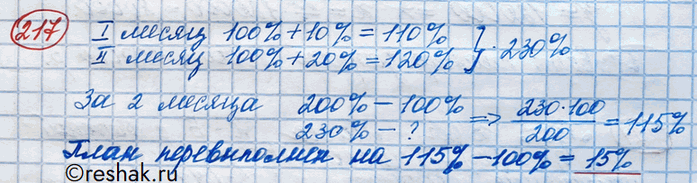 217 I месяц 100% + 10% = 110%
II месяц 100% + 20% = 120% } · 230%
За 2 месяца 200% – 100%
230% – ? => 230·100 / 200 = 115%
План перевыполнен на 115% – 100% = 15%
©reshak.ru